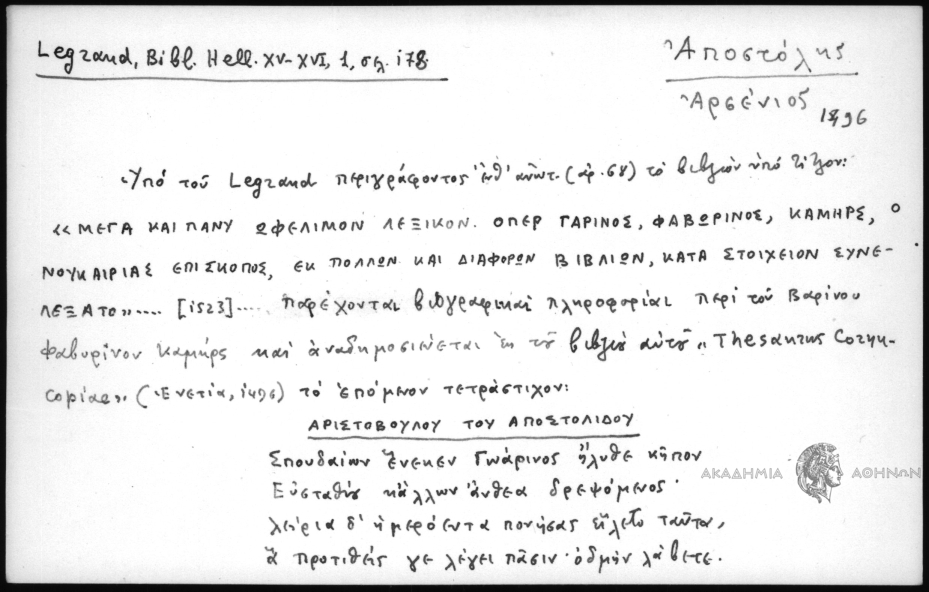 Legrand, Bibl. Hell. XV-XVI, 1, σελ. 178.
Ἀποστόλης
Ἀρσένιος
1496
Ὑπό τοῦ Legrand περιγράφοντος ἐνθ' ἀνωτ. (ἀρ. 68) τό βιβλίον ὑπό τίτλον:
«ΜΕΓΑ ΚΑΙ ΠΑΝΥ ΩΦΕΛΙΜΟΝ ΛΕΞΙΚΟΝ. ΟΠΕΡ ΓΑΡΙΝΟΣ, ΦΑΒΩΡΙΝΟΣ, ΚΑΜΗΡΣ, Ο
ΝΟΥΚΑΙΡΙΑΣ ΕΠΙΣΚΟΠΟΣ, ΕΚ ΠΟΛΛΩΝ ΚΑΙ ΔΙΑΦΟΡΩΝ ΒΙΒΛΙΩΝ, ΚΑΤΑ ΣΤΟΙΧΕΙΟΝ ΣΥΝΕ-
ΛΕΞΑΤΟ».... [1523].... παρέχονται βιογραφικαί πληροφορίαι περί τοῦ Βαρίνου
Φαβυρίνου Καμήρς καί ἀναδημοσιεύεται ἐκ τοῦ βιβλίου αὐτοῦ „Thesaurus Cornu-
copiae" (Ἐνετία, 1496) τό ἑπόμενον τετράστιχον:
ΑΡΙΣΤΟΒΟΥΛΟΥ ΤΟΥ ΑΠΟΣΤΟΛΙΔΟΥ
Σπουδαίων ἕνεκεν Γωάρινος ἤλυθε κῆπον
Εὐσταθίου κἄλλων ἄνθεα δρεψόμενος·
λείρια δ' ἡμερόεντα πονήσας εἵλετο ταῦτα,
ἅ προτιθείς γε λέγει πᾶσιν· ὀδμὴν λάβετε.
ΑΚΑΔΗΜΙΑ ΑΘΗΝΩΝ